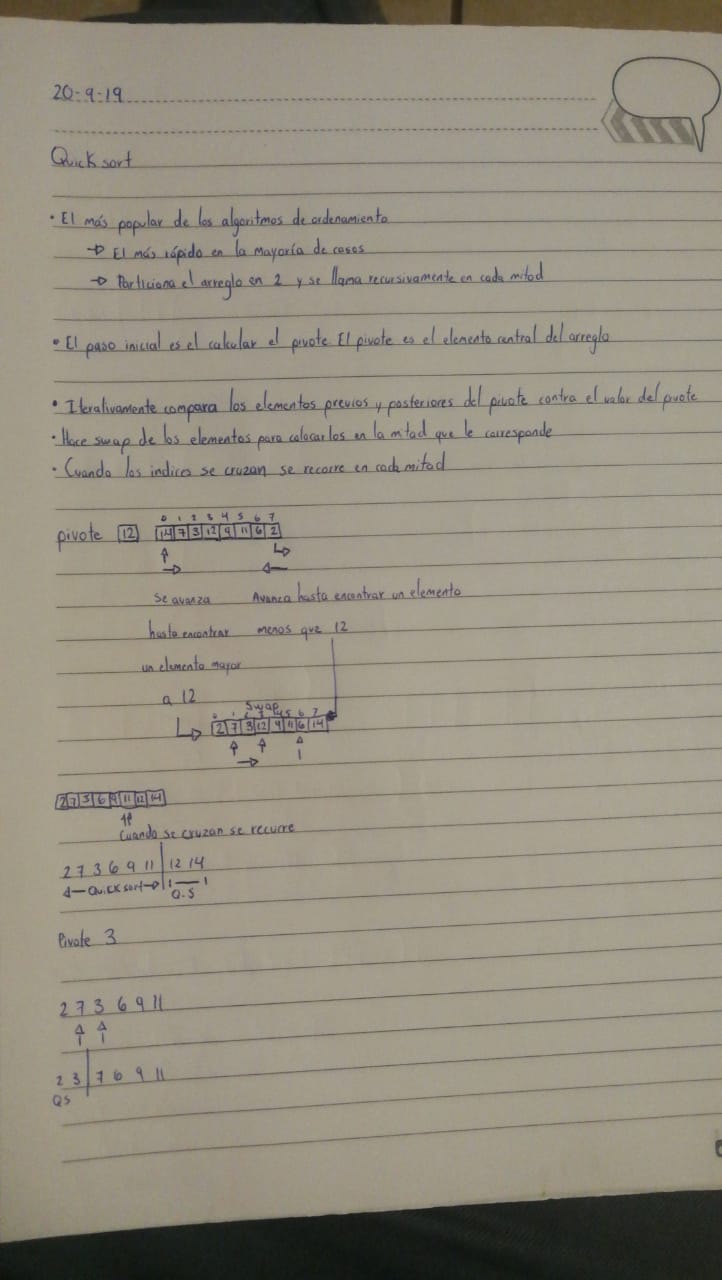 20-9-19
Quick sort
• El más popular de los algoritmos de ordenamiento
→ El más rápido en la mayoría de casos
→ Particiona el arreglo en 2 y se llama recursivamente en cada mitad
• El paso inicial es el calcular el pivote. El pivote es el elemento central del arreglo
• Iterativamente compara los elementos previos y posteriores del pivote contra el valor del pivote
• Hace swap de los elementos para colocarlos en la mitad que le corresponde
• Cuando los indices se cruzan se recorre en cada mitad
0 1 2 3 4 5 6 7
pivote 12 14 7 3 12 9 11 6 2
se avanza Avanza hasta encontrar un elemento
hasta encontrar menos que 12
un elemento mayor
a 12
Swap
0 1 2 3 4 5 6 7
2 7 3 12 9 11 6 14
2 7 3 6 9 11 12 14
Cuando se cruzan se recurre
2 7 3 6 9 11 | 12 14
←Quick sort→ Q.S
Pivote 3
2 7 3 6 9 11
2 3 | 7 6 9 11
QS